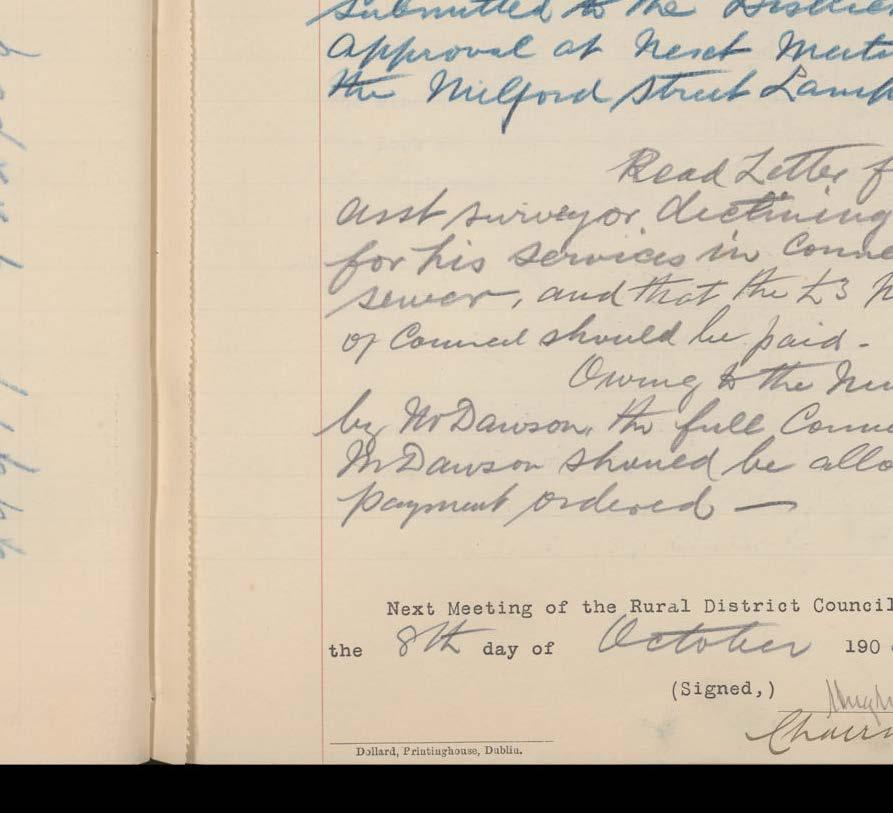 submitted to the District
approval at next Meeti
the Milford Street Lamp
Read Letter f
asst surveyor declining
for his services in Conne
sewer, and that the £3
of Council should be paid -
Owing to the
by Mr Dawson, the full Counc
Mr Dawson should be allo
payment ordered —
Next Meeting of the Rural District Council
the 8th day of October 190
(Signed,) Hugh
Chairm
Dollard, Printinghouse, Dublin.